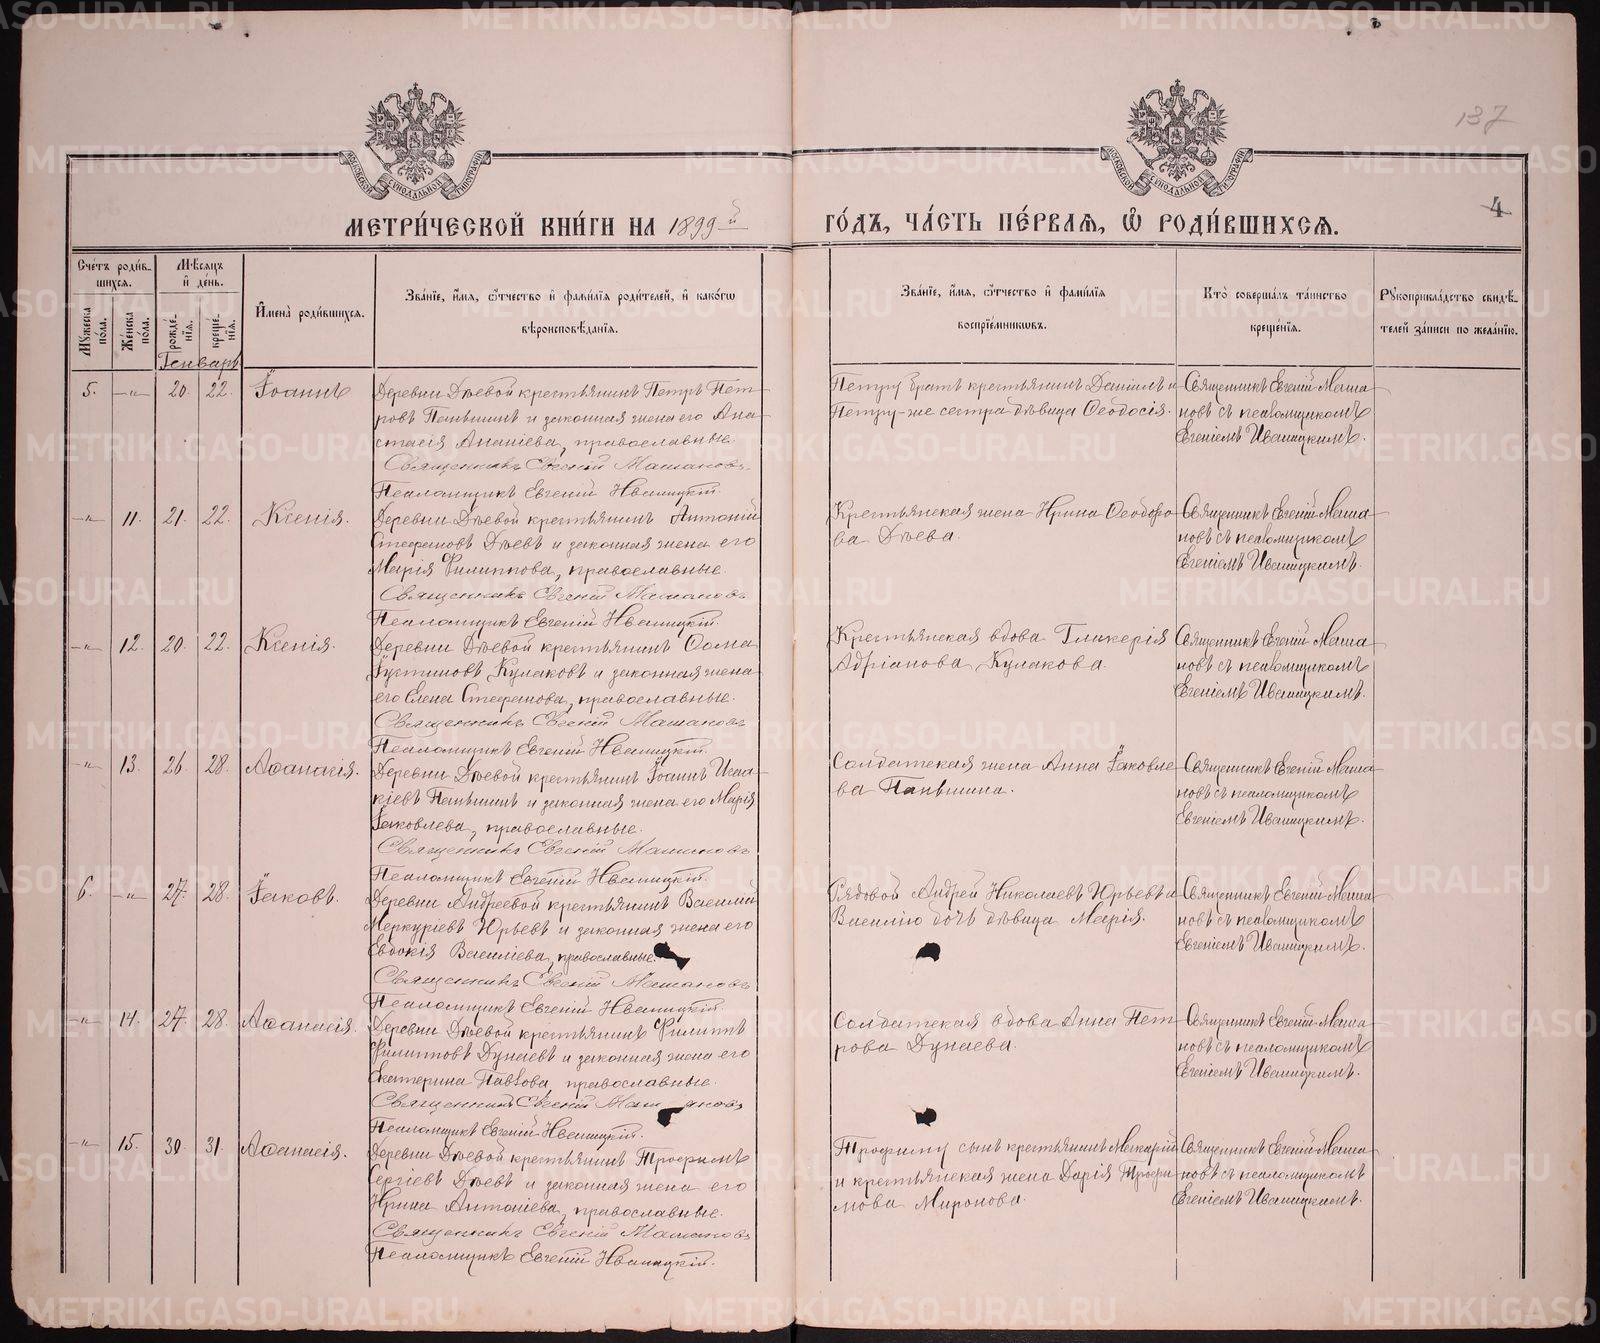 137
МОСКОВСКОЙ СѴНОДАЛЬНОЙ ТИПОГРАФІИ
МОСКОВСКОЙ СѴНОДАЛЬНОЙ ТИПОГРАФІИ
МЕТРИ́ЧЕСКОЙ КНИ́ГИ НА 1899й
ГО́ДЪ, ЧА́СТЬ ПЕ́РВАѦ, Ѡ҆ РОДИ́ВШИХСѦ.
4
Сче́тъ роди́в-
шихся.
Мꙋ́жеска по́ла.
Же́нска по́ла.
Мѣ́сяцъ
и҆ де́нь.
рожде́нїя.
креще́нїя.
И҆мена̀ роди́вшихся.
Зва́нїе, и҆́мя, ѻ҆́тчество и҆ фами́лїя роди́телей, и҆ како́гѡ
вѣроисповѣ́данїя.
Зва́нїе, и҆́мя, ѻ҆́тчество и҆ фами́лїя
воспрїе́мникѡвъ.
Кто̀ соверша́лъ та́инство
креще́нїя.
Рꙋкоприкла́дство свидѣ́-
телей за́писи по жела́нїю.
Генварь
5. —„— 20. 22. Іоаннъ
Деревни Дѣевой крестьянинъ Петръ Пет-
ровъ Паньшинъ и законная жена его Ана-
стасія Ананіева, православные.
Священникъ Евгеній Машановъ
Псаломщикъ Евгеній Иваницкій.
Петру братъ крестьянинъ Даніилъ и
Петру-же сестра дѣвица Ѳеодосія.
Священникъ Евгеній Маша-
новъ съ псаломщикомъ
Евгеніемъ Иваницкимъ.
—„— 11. 21. 22. Ксенія.
Деревни Дѣевой крестьянинъ Антоній
Стефановъ Дѣевъ и законная жена его
Марія Филиппова, православные.
Священникъ Евгеній Машановъ
Псаломщикъ Евгеній Иваницкій.
Крестьянская жена Ирина Ѳеодоро-
ва Дѣева.
Священникъ Евгеній Маша-
новъ съ псаломщикомъ
Евгеніемъ Иваницкимъ.
—„— 12. 20. 22. Ксенія.
Деревни Дѣевой крестьянинъ Ѳома
Іустиновъ Кулаковъ и законная жена
его Елена Стефанова, православные.
Священникъ Евгеній Машановъ
Псаломщикъ Евгеній Иваницкій.
Крестьянская вдова Гликерія
Адріанова Кулакова.
Священникъ Евгеній Маша-
новъ съ псаломщикомъ
Евгеніемъ Иваницкимъ.
—„— 13. 26. 28. Аѳанасія.
Деревни Дѣевой крестьянинъ Іоаннъ Исаа-
кіевъ Паньшинъ и законная жена его Марія
Іаковлева, православные.
Священникъ Евгеній Машановъ
Псаломщикъ Евгеній Иваницкій.
Солдатская жена Анна Іаковле-
ва Паньшина.
Священникъ Евгеній Маша-
новъ съ псаломщикомъ
Евгеніемъ Иваницкимъ.
6. —„— 27. 28. Іаковъ.
Деревни Андреевой крестьянинъ Василій
Меркуріевъ Юрьевъ и законная жена его
Евдокія Василіева, православные.
Священникъ Евгеній Машановъ
Псаломщикъ Евгеній Иваницкій.
Рядовой Андрей Николаевъ Юрьевъ и
Василію дочь дѣвица Марія.
Священникъ Евгеній Маша-
новъ съ псаломщикомъ
Евгеніемъ Иваницкимъ.
—„— 14. 27. 28. Аѳанасія.
Деревни Дѣевой крестьянинъ Филиппъ
Филипповъ Дунаевъ и законная жена его
Екатерина Павлова, православные.
Священникъ Евгеній Машановъ
Псаломщикъ Евгеній Иваницкій.
Солдатская вдова Анна Пет-
рова Дунаева.
Священникъ Евгеній Маша-
новъ съ псаломщикомъ
Евгеніемъ Иваницкимъ.
—„— 15. 30. 31. Аѳанасія.
Деревни Дѣевой крестьянинъ Трофимъ
Сергіевъ Дѣевъ и законная жена его
Ирина Антоніева, православные.
Священникъ Евгеній Машановъ
Псаломщикъ Евгеній Иваницкій.
Трофиму сынъ крестьянинъ Макарій
и крестьянская жена Дарія Трофи-
мова Миронова.
Священникъ Евгеній Маша-
новъ съ псаломщикомъ
Евгеніемъ Иваницкимъ.
METRIKI.GASO-URAL.RU